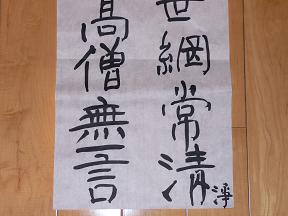 世網常清
高僧無言
淨